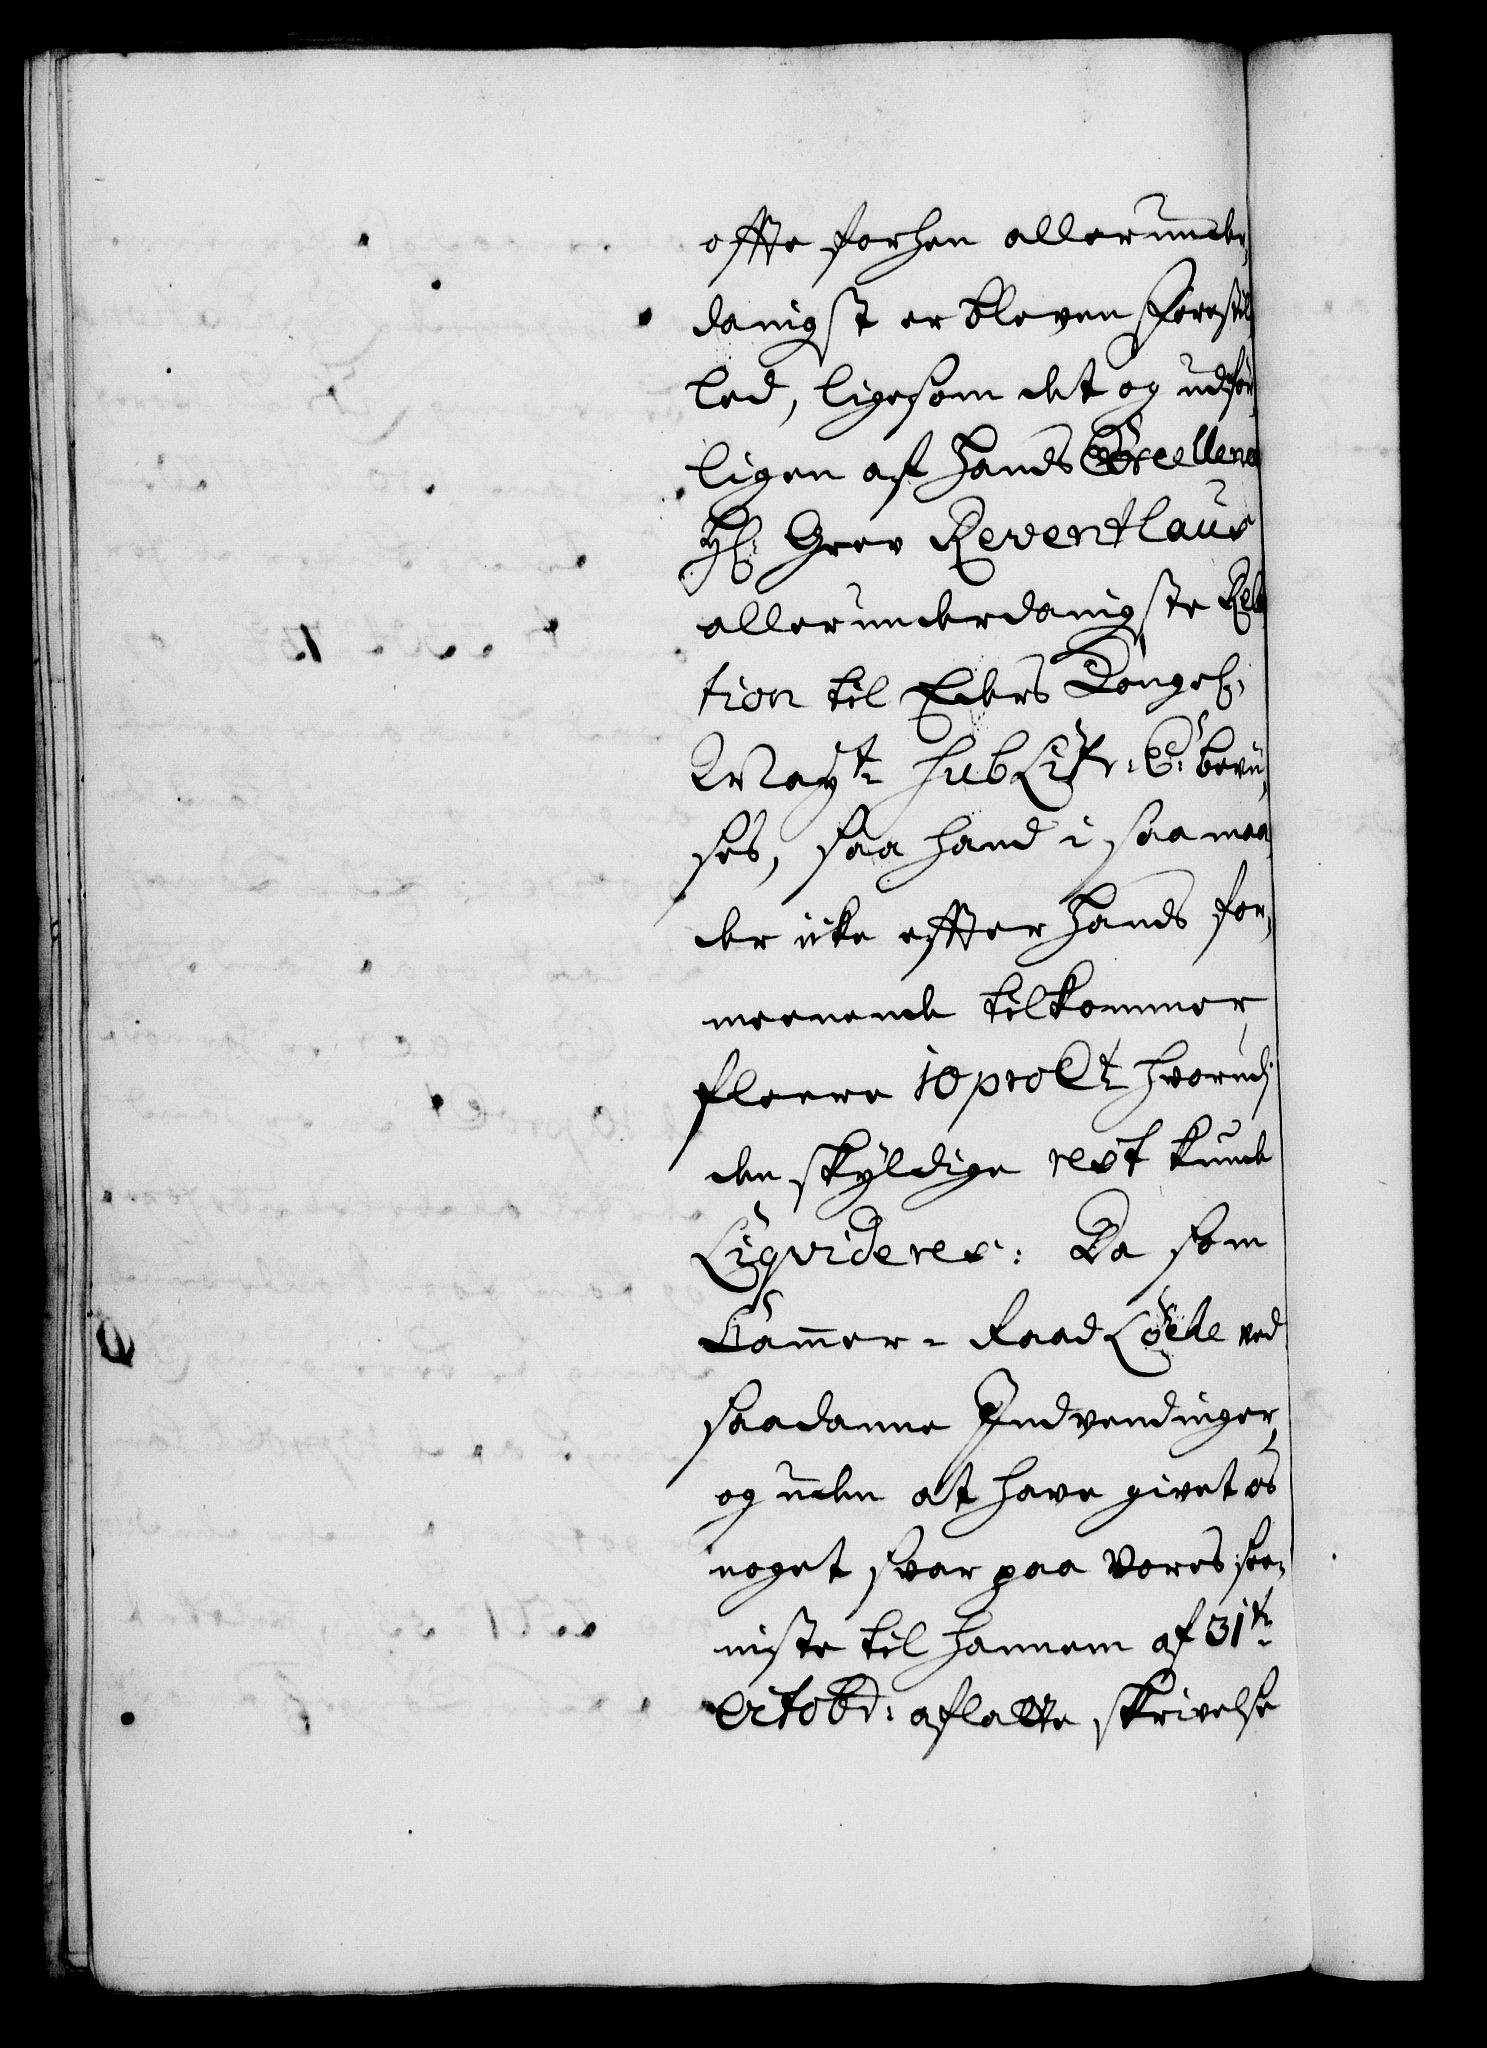 offte forhen allerunder-
danigst er bleven forestil-
led, ligesom det og udfør-
ligen af Hands Excellence
Hr: Grev Reventlaus
allerunderdanigste Rela-
tion til Eders Kongel:
Mayt: sub Litr: C: bevii-
ses, saa hand i saa maa-
der icke effter Hands for-
meenende tilkommer
fleere 10 pro Ct: hvorudj
den skyldige rest kunde
Liqvideres: Da som
Cammer-Raad ved
saadanne Indvendinger,
og uden at have givet os
noget svar paa Vores see-
niste til hannem af 31te
Octobr: aflatte skrivelse